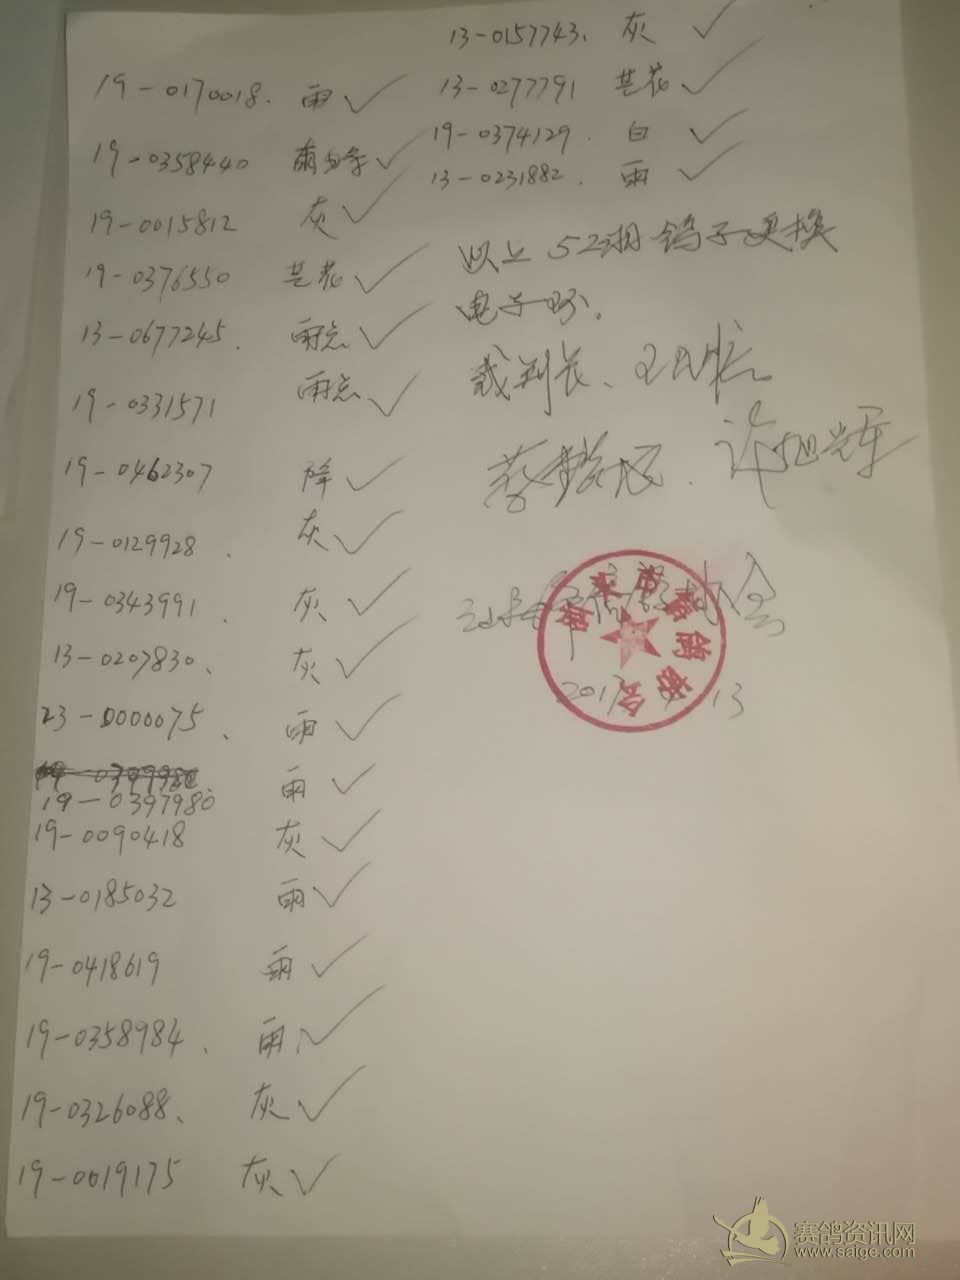 19-0170018. 雨
19-0358440 雨白条
19-0015812 灰
19-0376550 芒花
13-0677245. 雨点
19-0331571 雨点
19-0462307 降
19-0129928. 灰
19-0343991 灰
13-0207830、 灰
23-0000075、 雨
19-0397980. 雨
19-0090418 灰
13-0185032 雨
19-0418619 雨
19-0358984. 雨
19-0326088、 灰
19-0019175 灰
13-0157743. 灰
13-0277791 芒花
19-0374129. 白
13-0231882. 雨
以上52羽鸽子更换
电子环.
裁判长、
许旭辉
信鸽协会
2017 13
赛鸽资讯网
www.saige.com